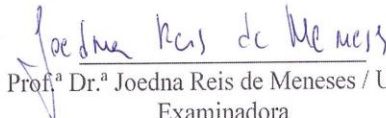 Joedna Reis de Meneses
Prof.ª Dr.ª Joedna Reis de Meneses / U
Examinadora